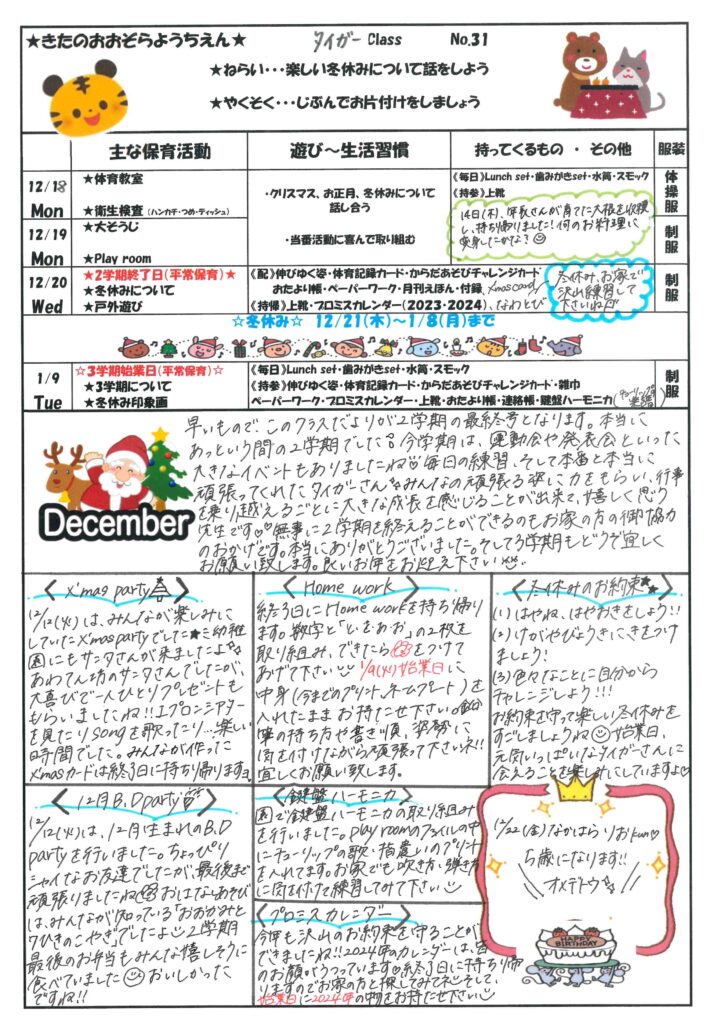 ★きたのおおぞらようちえん★ タイガー Class No.31
★ねらい・・・楽しい冬休みについて話をしよう
★やくそく・・・じぶんでお片付けをしましょう
主な保育活動 遊び～生活習慣 持ってくるもの ・ その他 服装
12/18 Mon
★体育教室
★衛生検査 (ハンカチ・つめ・ティッシュ)
・クリスマス、お正月、冬休みについて
話し合う
・当番活動に喜んで取り組む
《毎日》Lunch set・歯みがきset・水筒・スモック
《持参》上靴
14日(木)、年長さんが育てた大根を収穫
し、持ち帰りました!何のお料理に
変身したかな?
体操服
12/19 Mon
★大そうじ
★Play room
制服
12/20 Wed
★2学期終了日(平常保育)★
★冬休みについて
★戸外遊び
《配》伸びゆく姿・体育記録カード・からだあそびチャレンジカード
おたより帳・ペーパーワーク・月刊えほん・付録、Xmas card
《持帰》上靴・プロミスカレンダー(2023・2024)、なわとび
冬休み、お家で
沢山練習して
下さいね
制服
☆冬休み☆ 12/21(木)～1/8(月)まで
1/9 Tue
☆3学期始業日(平常保育)☆
★3学期について
★冬休み印象画
《毎日》Lunch set・歯みがきset・水筒・スモック
《持参》伸びゆく姿・体育記録カード・からだあそびチャレンジカード・雑巾
ペーパーワーク・プロミスカレンダー・上靴・おたより帳・連絡帳・鍵盤ハーモニカ
制服
December
早いもので、このクラスだよりが2学期の最終号となります。本当に
あっという間の2学期でした。今学期は、運動会や発表会といった
大きなイベントもありましたね♡毎日の練習、そして本番と本当に
頑張ってくれたタイガーさん。みんなの頑張る姿に力をもらい、行事
を乗り越えるごとに大きな成長を感じることが出来て、嬉しく思う
先生です♡無事に2学期を終えることができるのもお家の方の御協力
のおかげです。本当にありがとうございました。そして3学期もどうぞ宜しく
お願い致します。良いお年をお迎え下さい
X'mas party
12/12(火)は、みんなが楽しみに
していたX'mas partyでした★幼稚
園にもサンタさんが来ましたよ
あわてん坊のサンタさんでしたが、
大喜びで一人ひとりプレゼントも
もらいましたね!!エプロンシアター
を見たりsongを歌ったり…楽しい
時間でした。みんなが作った
X'masカードは終了日に持ち帰ります。
Home work
終了日にHome workを持ち帰り
ます。数字と「と・な・お」の2枚を
取り組み、できたら をつけて
あげて下さい 1/9(火)始業日に
中身(今までのプリント、ネームプレート)を
入れたままお持たせ下さい。鉛
筆の持ち方や書き順、姿勢に
気を付けながら頑張って下さいネ!!
宜しくお願い致します。
冬休みのお約束
(1)はやね、はやおきをしよう!!
(2)けがやびょうきにきをつけ
ましょう!
(3)色々なことに自分から
チャレンジしよう!!!
お約束を守って楽しい冬休みを
すごしましょうね 始業日、
元気いっぱいなタイガーさんに
会えることを楽しみにしていますよ♡
12月B.D party
12/12(火)は、12月生まれのB.D
partyを行いました。ちょっぴり
シャイなお友達でしたが、最後まで
頑張りましたね おはなしあそび
は、みんなが知っている「おおかみと
7ひきのこやぎ」でしたよ 2学期
最後のお弁当もみんな嬉しそうに
食べていました おいしかった
ですね!!
鍵盤ハーモニカ
園で鍵盤ハーモニカの取り組み
を行いました。play roomのファイルの中
にチューリップの歌・指遣いのプリント
を入れてます。お家でも吹き方・弾き方
に気を付けて練習してみて下さい
プロミスカレンダー
今年も沢山のお約束を守ることが
できましたね!!2024年のカレンダーは、皆
のお顔がうつっています♡終了日に持ち帰
りますのでお家の方と探してみてネ そして、
始業日に2024年の物をお持たせ下さい
12/22(金)なかはら りおkun♡
5歳になります!!
オメデトウ
HAPPY
BIRTHDAY